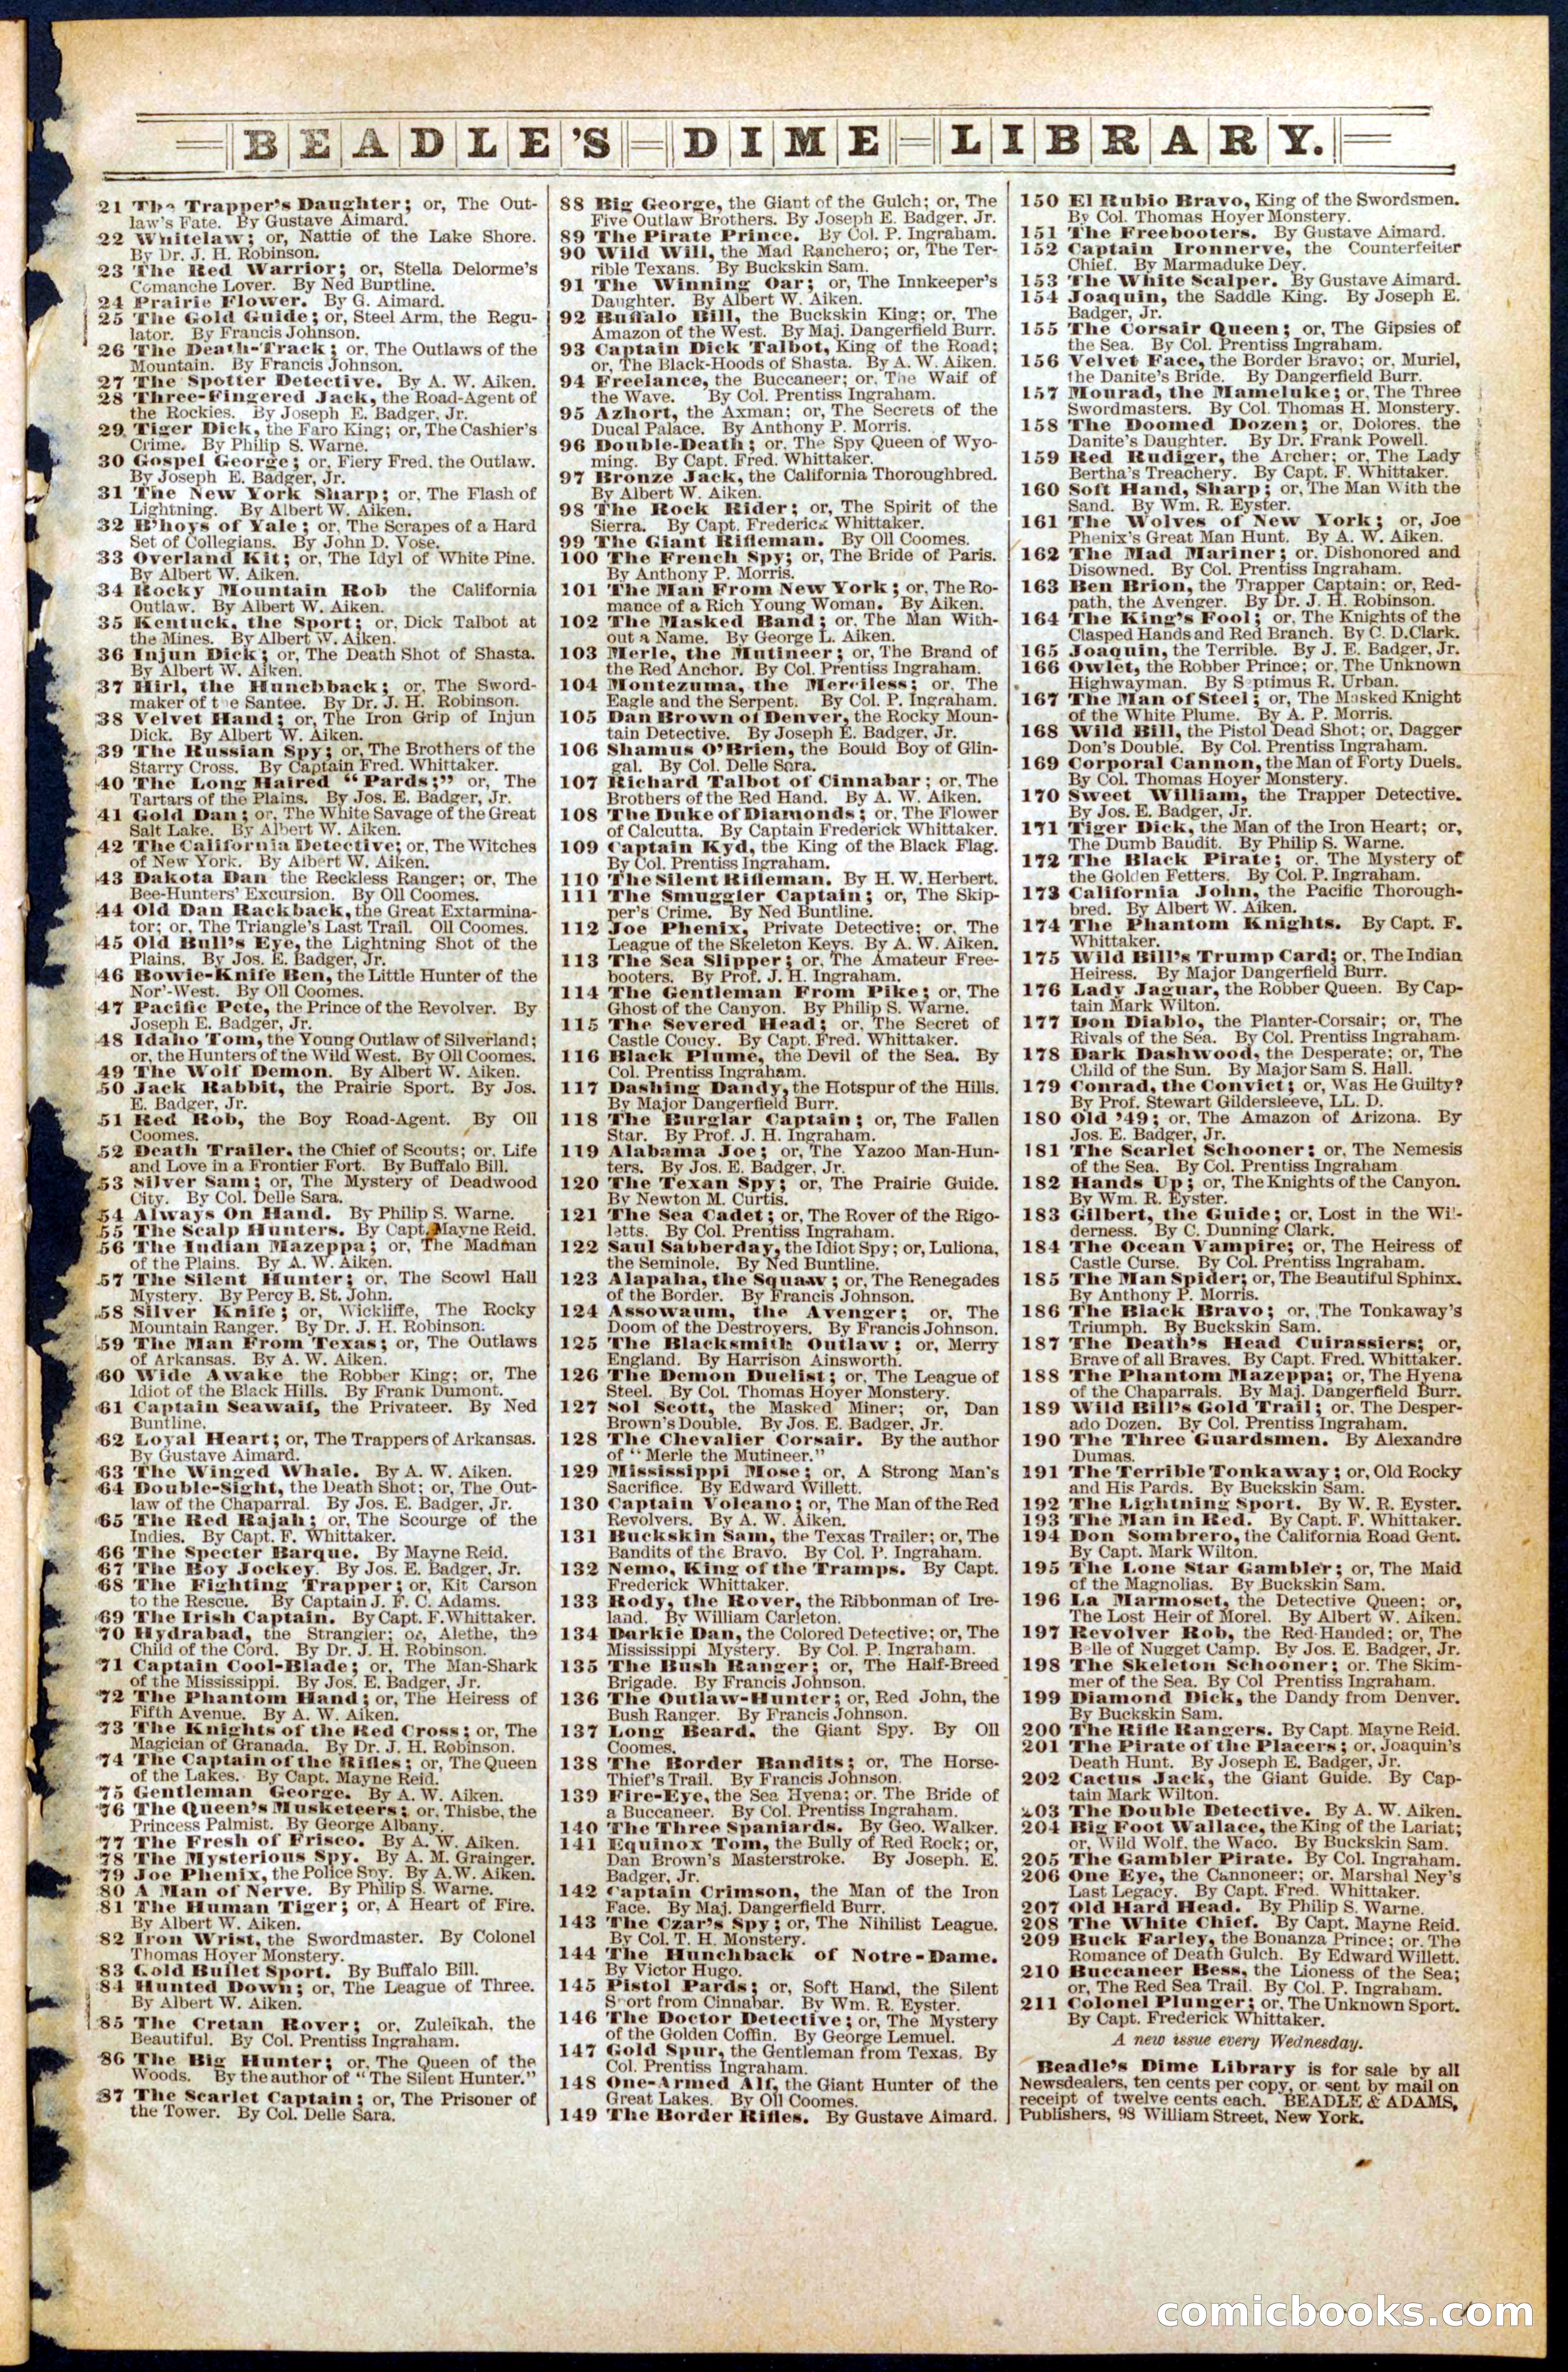 BEADLE'S DIME LIBRARY.
21 The Trapper's Daughter; or, The Out-
law's Fate. By Gustave Aimard.
22 Whitelaw; or, Nattie of the Lake Shore.
By Dr. J. H. Robinson.
23 The Red Warrior; or, Stella Delorme's
Comanche Lover. By Ned Buntline.
24 Prairie Flower. By G. Aimard.
25 The Gold Guide; or, Steel Arm, the Regu-
lator. By Francis Johnson.
26 The Death-Track; or, The Outlaws of the
Mountain. By Francis Johnson.
27 The Spotter Detective. By A. W. Aiken.
28 Three-Fingered Jack, the Road-Agent of
the Rockies. By Joseph E. Badger, Jr.
29 Tiger Dick, the Faro King; or, The Cashier's
Crime. By Philip S. Warne.
30 Gospel George; or, Fiery Fred, the Outlaw.
By Joseph E. Badger, Jr.
31 The New York Sharp; or, The Flash of
Lightning. By Albert W. Aiken.
32 B'hoys of Yale; or, The Scrapes of a Hard
Set of Collegians. By John D. Vose.
33 Overland Kit; or, The Idyl of White Pine.
By Albert W. Aiken.
34 Rocky Mountain Rob the California
Outlaw. By Albert W. Aiken.
35 Kentuck, the Sport; or, Dick Talbot at
the Mines. By Albert W. Aiken.
36 Injun Dick; or, The Death Shot of Shasta.
By Albert W. Aiken.
37 Hirl, the Hunchback; or, The Sword-
maker of the Santee. By Dr. J. H. Robinson.
38 Velvet Hand; or, The Iron Grip of Injun
Dick. By Albert W. Aiken.
39 The Russian Spy; or, The Brothers of the
Starry Cross. By Captain Fred. Whittaker.
40 The Long Haired "Pards;" or, The
Tartars of the Plains. By Jos. E. Badger, Jr.
41 Gold Dan; or, The White Savage of the Great
Salt Lake. By Albert W. Aiken.
42 The California Detective; or, The Witches
of New York. By Albert W. Aiken.
43 Dakota Dan the Reckless Ranger; or, The
Bee-Hunters' Excursion. By Oll Coomes.
44 Old Dan Rackback, the Great Extarmina-
tor; or, The Triangle's Last Trail. Oll Coomes.
45 Old Bull's Eye, the Lightning Shot of the
Plains. By Jos. E. Badger, Jr.
46 Bowie-Knife Ben, the Little Hunter of the
Nor'-West. By Oll Coomes.
47 Pacific Pete, the Prince of the Revolver. By
Joseph E. Badger, Jr.
48 Idaho Tom, the Young Outlaw of Silverland;
or, the Hunters of the Wild West. By Oll Coomes.
49 The Wolf Demon. By Albert W. Aiken.
50 Jack Rabbit, the Prairie Sport. By Jos.
E. Badger, Jr.
51 Red Rob, the Boy Road-Agent. By Oll
Coomes.
52 Death Trailer, the Chief of Scouts; or, Life
and Love in a Frontier Fort. By Buffalo Bill.
53 Silver Sam; or, The Mystery of Deadwood
City. By Col. Delle Sara.
54 Always On Hand. By Philip S. Warne.
55 The Scalp Hunters. By Capt. Mayne Reid.
56 The Indian Mazeppa; or, The Madman
of the Plains. By A. W. Aiken.
57 The Silent Hunter; or, The Scowl Hall
Mystery. By Percy B. St. John.
58 Silver Knife; or, Wickliffe, The Rocky
Mountain Ranger. By Dr. J. H. Robinson.
59 The Man From Texas; or, The Outlaws
of Arkansas. By A. W. Aiken.
60 Wide Awake the Robber King; or, The
Idiot of the Black Hills. By Frank Dumont.
61 Captain Seawaif, the Privateer. By Ned
Buntline.
62 Loyal Heart; or, The Trappers of Arkansas.
By Gustave Aimard.
63 The Winged Whale. By A. W. Aiken.
64 Double-Sight, the Death Shot; or, The Out-
law of the Chaparral. By Jos. E. Badger, Jr.
65 The Red Rajah; or, The Scourge of the
Indies. By Capt. F. Whittaker.
66 The Specter Barque. By Mayne Reid.
67 The Boy Jockey. By Jos. E. Badger, Jr.
68 The Fighting Trapper; or, Kit Carson
to the Rescue. By Captain J. F. C. Adams.
69 The Irish Captain. By Capt. F. Whittaker.
70 Hydrabad, the Strangler; or, Alethe, the
Child of the Cord. By Dr. J. H. Robinson.
71 Captain Cool-Blade; or, The Man-Shark
of the Mississippi. By Jos. E. Badger, Jr.
72 The Phantom Hand; or, The Heiress of
Fifth Avenue. By A. W. Aiken.
73 The Knights of the Red Cross; or, The
Magician of Granada. By Dr. J. H. Robinson.
74 The Captain of the Rifles; or, The Queen
of the Lakes. By Capt. Mayne Reid.
75 Gentleman George. By A. W. Aiken.
76 The Queen's Musketeers; or, Thisbe, the
Princess Palmist. By George Albany.
77 The Fresh of Frisco. By A. W. Aiken.
78 The Mysterious Spy. By A. M. Grainger.
79 Joe Phenix, the Police Spy. By A. W. Aiken.
80 A Man of Nerve. By Philip S. Warne.
81 The Human Tiger; or, A Heart of Fire.
By Albert W. Aiken.
82 Iron Wrist, the Swordmaster. By Colonel
Thomas Hoyer Monstery.
83 Gold Bullet Sport. By Buffalo Bill.
84 Hunted Down; or, The League of Three.
By Albert W. Aiken.
85 The Cretan Rover; or, Zuleikah, the
Beautiful. By Col. Prentiss Ingraham.
86 The Big Hunter; or, The Queen of the
Woods. By the author of "The Silent Hunter."
87 The Scarlet Captain; or, The Prisoner of
the Tower. By Col. Delle Sara.
88 Big George, the Giant of the Gulch; or, The
Five Outlaw Brothers. By Joseph E. Badger, Jr.
89 The Pirate Prince. By Col. P. Ingraham.
90 Wild Will, the Mad Ranchero; or, The Ter-
rible Texans. By Buckskin Sam.
91 The Winning Oar; or, The Innkeeper's
Daughter. By Albert W. Aiken.
92 Buffalo Bill, the Buckskin King; or, The
Amazon of the West. By Maj. Dangerfield Burr.
93 Captain Dick Talbot, King of the Road;
or, The Black-Hoods of Shasta. By A. W. Aiken.
94 Freelance, the Buccaneer; or, The Waif of
the Wave. By Col. Prentiss Ingraham.
95 Azhort, the Axman; or, The Secrets of the
Ducal Palace. By Anthony P. Morris.
96 Double-Death; or, The Spy Queen of Wyo-
ming. By Capt. Fred. Whittaker.
97 Bronze Jack, the California Thoroughbred.
By Albert W. Aiken.
98 The Rock Rider; or, The Spirit of the
Sierra. By Capt. Frederick Whittaker.
99 The Giant Rifleman. By Oll Coomes.
100 The French Spy; or, The Bride of Paris.
By Anthony P. Morris.
101 The Man From New York; or, The Ro-
mance of a Rich Young Woman. By Aiken.
102 The Masked Band; or, The Man With-
out a Name. By George L. Aiken.
103 Merle, the Mutineer; or, The Brand of
the Red Anchor. By Col. Prentiss Ingraham.
104 Montezuma, the Merciless; or, The
Eagle and the Serpent. By Col. P. Ingraham.
105 Dan Brown of Denver, the Rocky Moun-
tain Detective. By Joseph E. Badger, Jr.
106 Shamus O'Brien, the Bould Boy of Glin-
gal. By Col. Delle Sara.
107 Richard Talbot of Cinnabar; or, The
Brothers of the Red Hand. By A. W. Aiken.
108 The Duke of Diamonds; or, The Flower
of Calcutta. By Captain Frederick Whittaker.
109 Captain Kyd, the King of the Black Flag.
By Col. Prentiss Ingraham.
110 The Silent Rifleman. By H. W. Herbert.
111 The Smuggler Captain; or, The Skip-
per's Crime. By Ned Buntline.
112 Joe Phenix, Private Detective; or, The
League of the Skeleton Keys. By A. W. Aiken.
113 The Sea Slipper; or, The Amateur Free-
booters. By Prof. J. H. Ingraham.
114 The Gentleman From Pike; or, The
Ghost of the Canyon. By Philip S. Warne.
115 The Severed Head; or, The Secret of
Castle Coucy. By Capt. Fred. Whittaker.
116 Black Plume, the Devil of the Sea. By
Col. Prentiss Ingraham.
117 Dashing Dandy, the Hotspur of the Hills.
By Major Dangerfield Burr.
118 The Burglar Captain; or, The Fallen
Star. By Prof. J. H. Ingraham.
119 Alabama Joe; or, The Yazoo Man-Hun-
ters. By Jos. E. Badger, Jr.
120 The Texan Spy; or, The Prairie Guide.
By Newton M. Curtis.
121 The Sea Cadet; or, The Rover of the Rigo-
letts. By Col. Prentiss Ingraham.
122 Saul Sabberday, the Idiot Spy; or, Luliona,
the Seminole. By Ned Buntline.
123 Alapaha, the Squaw; or, The Renegades
of the Border. By Francis Johnson.
124 Assowaum, the Avenger; or, The
Doom of the Destroyers. By Francis Johnson.
125 The Blacksmith Outlaw; or, Merry
England. By Harrison Ainsworth.
126 The Demon Duelist; or, The League of
Steel. By Col. Thomas Hoyer Monstery.
127 Sol Scott, the Masked Miner; or, Dan
Brown's Double. By Jos. E. Badger, Jr.
128 The Chevalier Corsair. By the author
of "Merle the Mutineer."
129 Mississippi Mose; or, A Strong Man's
Sacrifice. By Edward Willett.
130 Captain Volcano; or, The Man of the Red
Revolvers. By A. W. Aiken.
131 Buckskin Sam, the Texas Trailer; or, The
Bandits of the Bravo. By Col. P. Ingraham.
132 Nemo, King of the Tramps. By Capt.
Frederick Whittaker.
133 Rody, the Rover, the Ribbonman of Ire-
land. By William Carleton.
134 Darkie Dan, the Colored Detective; or, The
Mississippi Mystery. By Col. P. Ingraham.
135 The Bush Ranger; or, The Half-Breed
Brigade. By Francis Johnson.
136 The Outlaw-Hunter; or, Red John, the
Bush Ranger. By Francis Johnson.
137 Long Beard, the Giant Spy. By Oll
Coomes.
138 The Border Bandits; or, The Horse-
Thief's Trail. By Francis Johnson.
139 Fire-Eye, the Sea Hyena; or, The Bride of
a Buccaneer. By Col. Prentiss Ingraham.
140 The Three Spaniards. By Geo. Walker.
141 Equinox Tom, the Bully of Red Rock; or,
Dan Brown's Masterstroke. By Joseph. E.
Badger, Jr.
142 Captain Crimson, the Man of the Iron
Face. By Maj. Dangerfield Burr.
143 The Czar's Spy; or, The Nihilist League.
By Col. T. H. Monstery.
144 The Hunchback of Notre-Dame.
By Victor Hugo.
145 Pistol Pards; or, Soft Hand, the Silent
Sport from Cinnabar. By Wm. R. Eyster.
146 The Doctor Detective; or, The Mystery
of the Golden Coffin. By George Lemuel.
147 Gold Spur, the Gentleman from Texas. By
Col. Prentiss Ingraham.
148 One-Armed Alf, the Giant Hunter of the
Great Lakes. By Oll Coomes.
149 The Border Rifles. By Gustave Aimard.
150 El Rubio Bravo, King of the Swordsmen.
By Col. Thomas Hoyer Monstery.
151 The Freebooters. By Gustave Aimard.
152 Captain Ironnerve, the Counterfeiter
Chief. By Marmaduke Dey.
153 The White Scalper. By Gustave Aimard.
154 Joaquin, the Saddle King. By Joseph E.
Badger, Jr.
155 The Corsair Queen; or, The Gipsies of
the Sea. By Col. Prentiss Ingraham.
156 Velvet Face, the Border Bravo; or, Muriel,
the Danite's Bride. By Dangerfield Burr.
157 Mourad, the Mameluke; or, The Three
Swordmasters. By Col. Thomas H. Monstery.
158 The Doomed Dozen; or, Dolores, the
Danite's Daughter. By Dr. Frank Powell.
159 Red Rudiger, the Archer; or, The Lady
Bertha's Treachery. By Capt. F. Whittaker.
160 Soft Hand, Sharp; or, The Man With the
Sand. By Wm. R. Eyster.
161 The Wolves of New York; or, Joe
Phenix's Great Man Hunt. By A. W. Aiken.
162 The Mad Mariner; or, Dishonored and
Disowned. By Col. Prentiss Ingraham.
163 Ben Brion, the Trapper Captain; or, Red-
path, the Avenger. By Dr. J. H. Robinson.
164 The King's Fool; or, The Knights of the
Clasped Hands and Red Branch. By C. D. Clark.
165 Joaquin, the Terrible. By J. E. Badger, Jr.
166 Owlet, the Robber Prince; or, The Unknown
Highwayman. By Septimus R. Urban.
167 The Man of Steel; or, The Masked Knight
of the White Plume. By A. P. Morris.
168 Wild Bill, the Pistol Dead Shot; or, Dagger
Don's Double. By Col. Prentiss Ingraham.
169 Corporal Cannon, the Man of Forty Duels.
By Col. Thomas Hoyer Monstery.
170 Sweet William, the Trapper Detective.
By Jos. E. Badger, Jr.
171 Tiger Dick, the Man of the Iron Heart; or,
The Dumb Bandit. By Philip S. Warne.
172 The Black Pirate; or, The Mystery of
the Golden Fetters. By Col. P. Ingraham.
173 California John, the Pacific Thorough-
bred. By Albert W. Aiken.
174 The Phantom Knights. By Capt. F.
Whittaker.
175 Wild Bill's Trump Card; or, The Indian
Heiress. By Major Dangerfield Burr.
176 Lady Jaguar, the Robber Queen. By Cap-
tain Mark Wilton.
177 Don Diablo, the Planter-Corsair; or, The
Rivals of the Sea. By Col. Prentiss Ingraham.
178 Dark Dashwood, the Desperate; or, The
Child of the Sun. By Major Sam S. Hall.
179 Conrad, the Convict; or, Was He Guilty?
By Prof. Stewart Gildersleeve, LL. D.
180 Old '49; or, The Amazon of Arizona. By
Jos. E. Badger, Jr.
181 The Scarlet Schooner; or, The Nemesis
of the Sea. By Col. Prentiss Ingraham
182 Hands Up; or, The Knights of the Canyon.
By Wm. R. Eyster.
183 Gilbert, the Guide; or, Lost in the Wil-
derness. By C. Dunning Clark.
184 The Ocean Vampire; or, The Heiress of
Castle Curse. By Col. Prentiss Ingraham.
185 The Man Spider; or, The Beautiful Sphinx.
By Anthony P. Morris.
186 The Black Bravo; or, The Tonkaway's
Triumph. By Buckskin Sam.
187 The Death's Head Cuirassiers; or,
Brave of all Braves. By Capt. Fred. Whittaker.
188 The Phantom Mazeppa; or, The Hyena
of the Chaparrals. By Maj. Dangerfield Burr.
189 Wild Bill's Gold Trail; or, The Desper-
ado Dozen. By Col. Prentiss Ingraham.
190 The Three Guardsmen. By Alexandre
Dumas.
191 The Terrible Tonkaway; or, Old Rocky
and His Pards. By Buckskin Sam.
192 The Lightning Sport. By W. R. Eyster.
193 The Man in Red. By Capt. F. Whittaker.
194 Don Sombrero, the California Road Gent.
By Capt. Mark Wilton.
195 The Lone Star Gambler; or, The Maid
of the Magnolias. By Buckskin Sam.
196 La Marmoset, the Detective Queen; or,
The Lost Heir of Morel. By Albert W. Aiken.
197 Revolver Rob, the Red-Handed; or, The
Belle of Nugget Camp. By Jos. E. Badger, Jr.
198 The Skeleton Schooner; or, The Skim-
mer of the Sea. By Col Prentiss Ingraham.
199 Diamond Dick, the Dandy from Denver.
By Buckskin Sam.
200 The Rifle Rangers. By Capt. Mayne Reid.
201 The Pirate of the Placers; or, Joaquin's
Death Hunt. By Joseph E. Badger, Jr.
202 Cactus Jack, the Giant Guide. By Cap-
tain Mark Wilton.
203 The Double Detective. By A. W. Aiken.
204 Big Foot Wallace, the King of the Lariat;
or, Wild Wolf, the Waco. By Buckskin Sam.
205 The Gambler Pirate. By Col. Ingraham.
206 One Eye, the Cannoneer; or, Marshal Ney's
Last Legacy. By Capt. Fred. Whittaker.
207 Old Hard Head. By Philip S. Warne.
208 The White Chief. By Capt. Mayne Reid.
209 Buck Farley, the Bonanza Prince; or, The
Romance of Death Gulch. By Edward Willett.
210 Buccaneer Bess, the Lioness of the Sea;
or, The Red Sea Trail. By Col. P. Ingraham.
211 Colonel Plunger; or, The Unknown Sport.
By Capt. Frederick Whittaker.
A new issue every Wednesday.
Beadle's Dime Library is for sale by all
Newsdealers, ten cents per copy, or sent by mail on
receipt of twelve cents each. BEADLE & ADAMS,
Publishers, 98 William Street, New York.
comicbooks.com